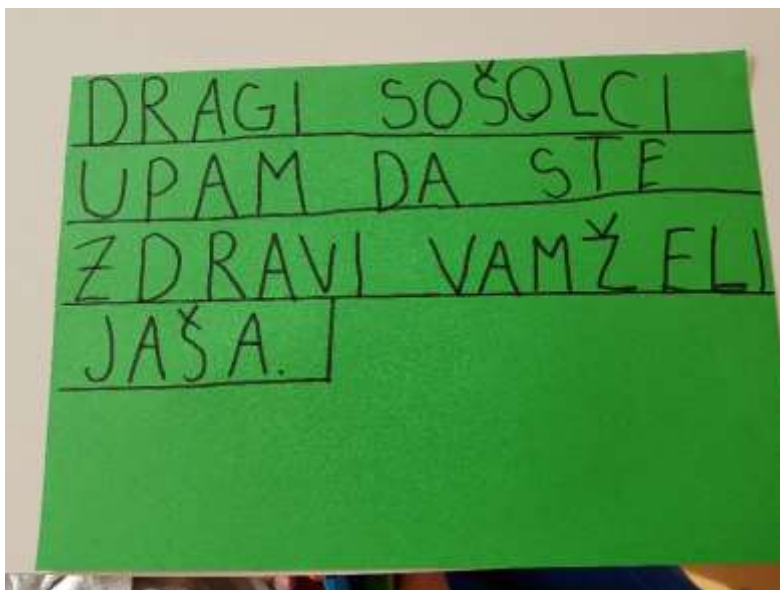 DRAGI SOŠOLCI
UPAM DA STE
ZDRAVI VAM ŽELI
JAŠA.